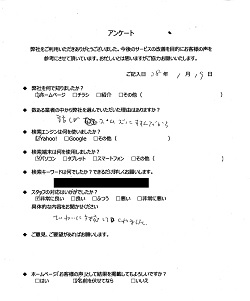 アンケート
弊社をご利用いただきありがとうございました。今後のサービスの改善を目的にお客様の声を
参考にさせて頂いています。お忙しいとは思いますがご協力お願いいたします。
ご記入日 25年 1月 19日
◆ 弊社を何で知りましたか？
☑ホームページ □チラシ □紹介 □その他（ ）
◆ 数ある業者の中から弊社を選んでいただいた理由はありますか？
◆ 検索エンジンは何を使いましたか？
☑Yahoo! □Google □その他（ ）
◆ 検索端末は何を使用しましたか？
☑パソコン □タブレット □スマートフォン □その他（ ）
◆ 検索キーワードは何でしたか？できるだけ詳しくお願いします。
◆ スタッフの対応はいかがでしたか？
☑非常に良い □良い □ふつう □悪い □非常に悪い
具体的な内容をお聞かせください
◆ ご意見、ご要望があればお願いします。
◆ ホームページ「お客様の声」として結果を掲載してもよろしいですか？
□はい ☑名前を伏せてなら □いいえ